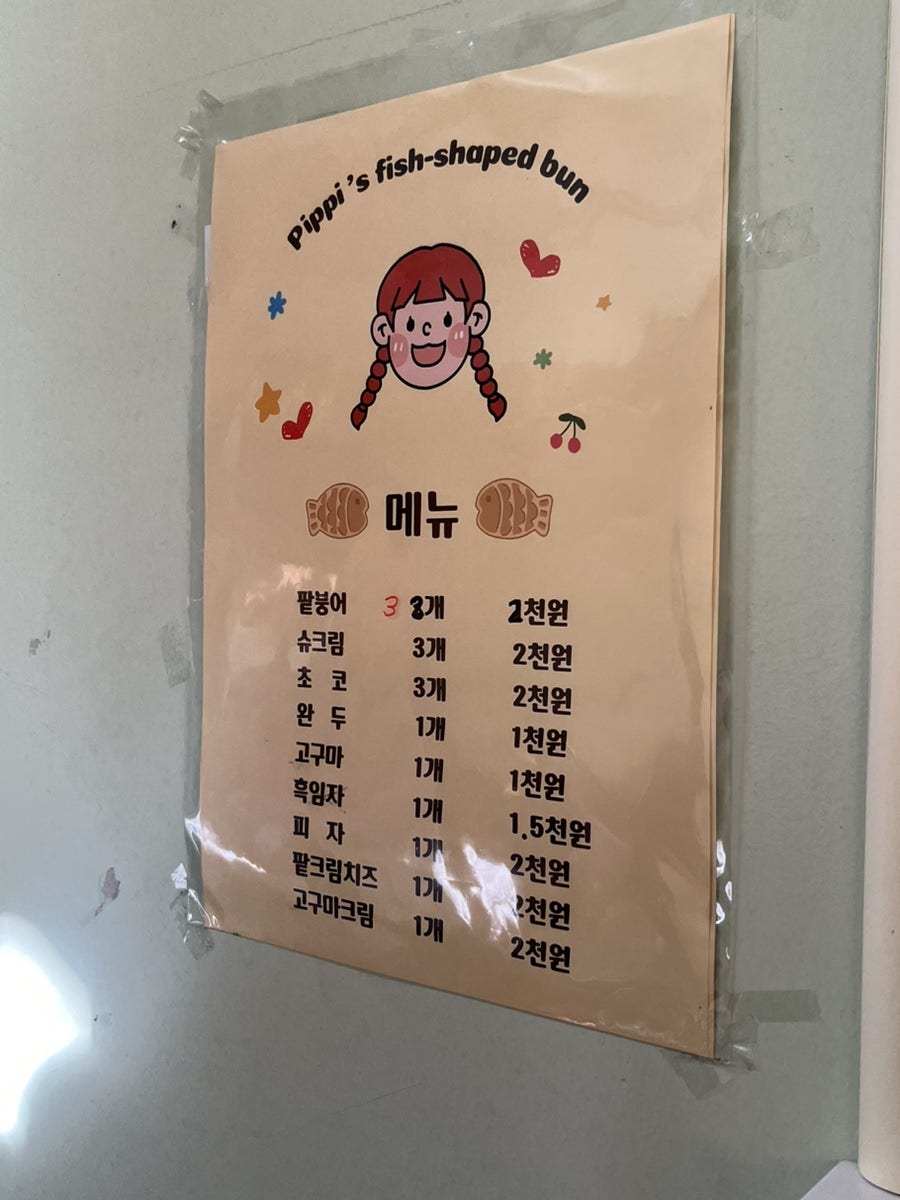 Pippi's fish-shaped bun
메뉴
팥붕어 3 3개 2천원
슈크림 3개 2천원
초 코 3개 2천원
완 두 1개 1천원
고구마 1개 1천원
흑임자 1개 1.5천원
피 자 1개 2천원
팥크림치즈 1개 2천원
고구마크림 1개 2천원